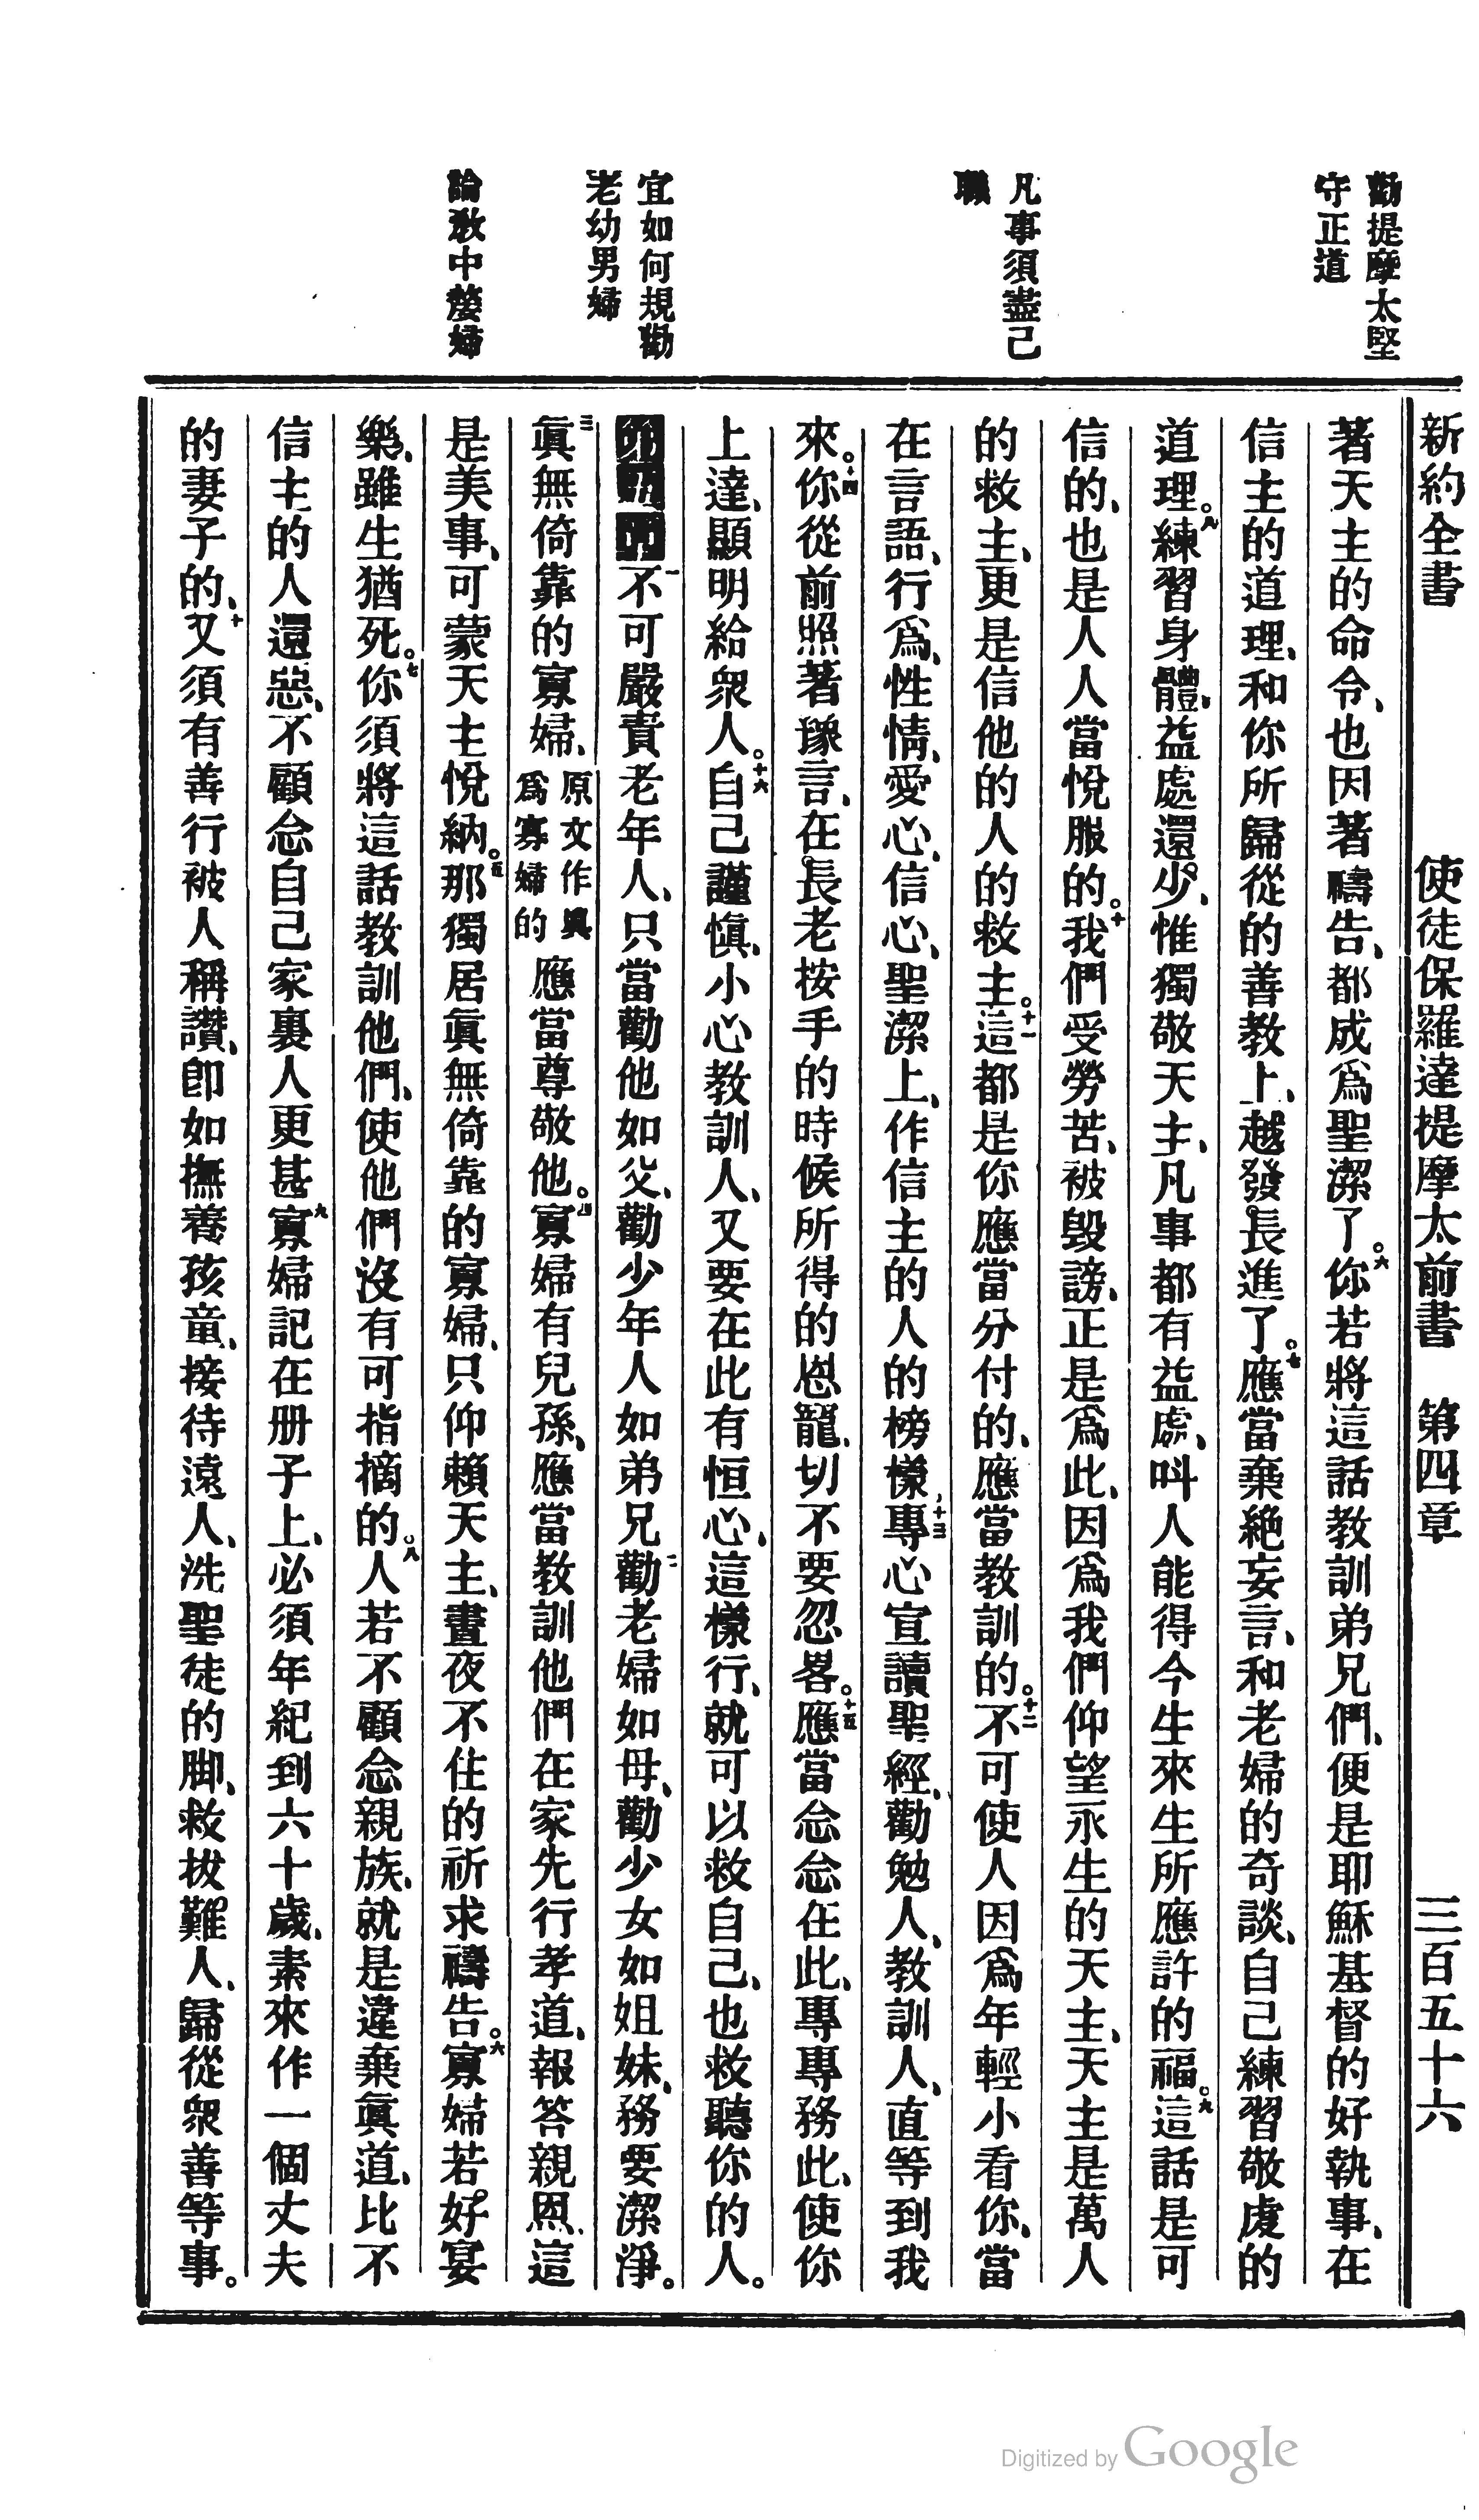 勸提摩太堅
守正道
凡事須盡己
職
宜如何規勸
老幼男婦
論敎中嫠婦
新約全書 使徒保羅達提摩太前書 第四章 三百五十六
著天主的命令、也因著禱告、都成爲聖潔了。六你若將這話教訓弟兄們、便是耶穌基督的好執事、在
信主的道理、和你所歸從的善教上、越發長進了。七應當棄絶妄言、和老婦的奇談、自己練習敬虔的
道理。八練習身體、益處還少、惟獨敬天主、凡事都有益處、呌人能得今生來生所應許的福。九這話是可
信的、也是人人當悅服的。十我們受勞苦、被毁謗、正是爲此、因爲我們仰望永生的天主、天主是萬人
的救主、更是信他的人的救主。十一這都是你應當分付的、應當教訓的。十二不可使人因爲年輕小看你、當
在言語、行爲、性情、愛心、信心、聖潔上、作信主的人的榜樣、十三專心宣讀聖經、勸勉人、教訓人、直等到我
來。十四你從前照著豫言、在長老按手的時候所得的恩寵、切不要忽畧。十五應當念念在此、專專務此、使你
上達、顯明給衆人。十六自己謹愼、小心教訓人、又要在此有恒心、這樣行、就可以救自己、也救聽你的人。
一不可嚴責老年人、只當勸他如父、勸少年人如弟兄、二勸老婦如母、勸少女如姐妹、務要潔淨。
三眞無倚靠的寡婦、原文作眞爲寡婦的應當尊敬他。四寡婦有兒孫、應當教訓他們在家先行孝道、報答親恩、這
是美事、可蒙天主悅納。五那獨居眞無倚靠的寡婦、只仰賴天主、晝夜不住的祈求禱告。六寡婦若好宴
樂、雖生猶死。七你須將這話教訓他們、使他們沒有可指摘的。八人若不顧念親族、就是違棄眞道、比不
信主的人還惡、不顧念自己家裏人更甚九寡婦記在册子上、必須年紀到六十歲、素來作一個丈夫
的妻子的、十又須有善行被人稱讚、卽如撫養孩童、接待遠人、洗聖徒的脚、救拔難人、歸從衆善等事。
Digitized by Google